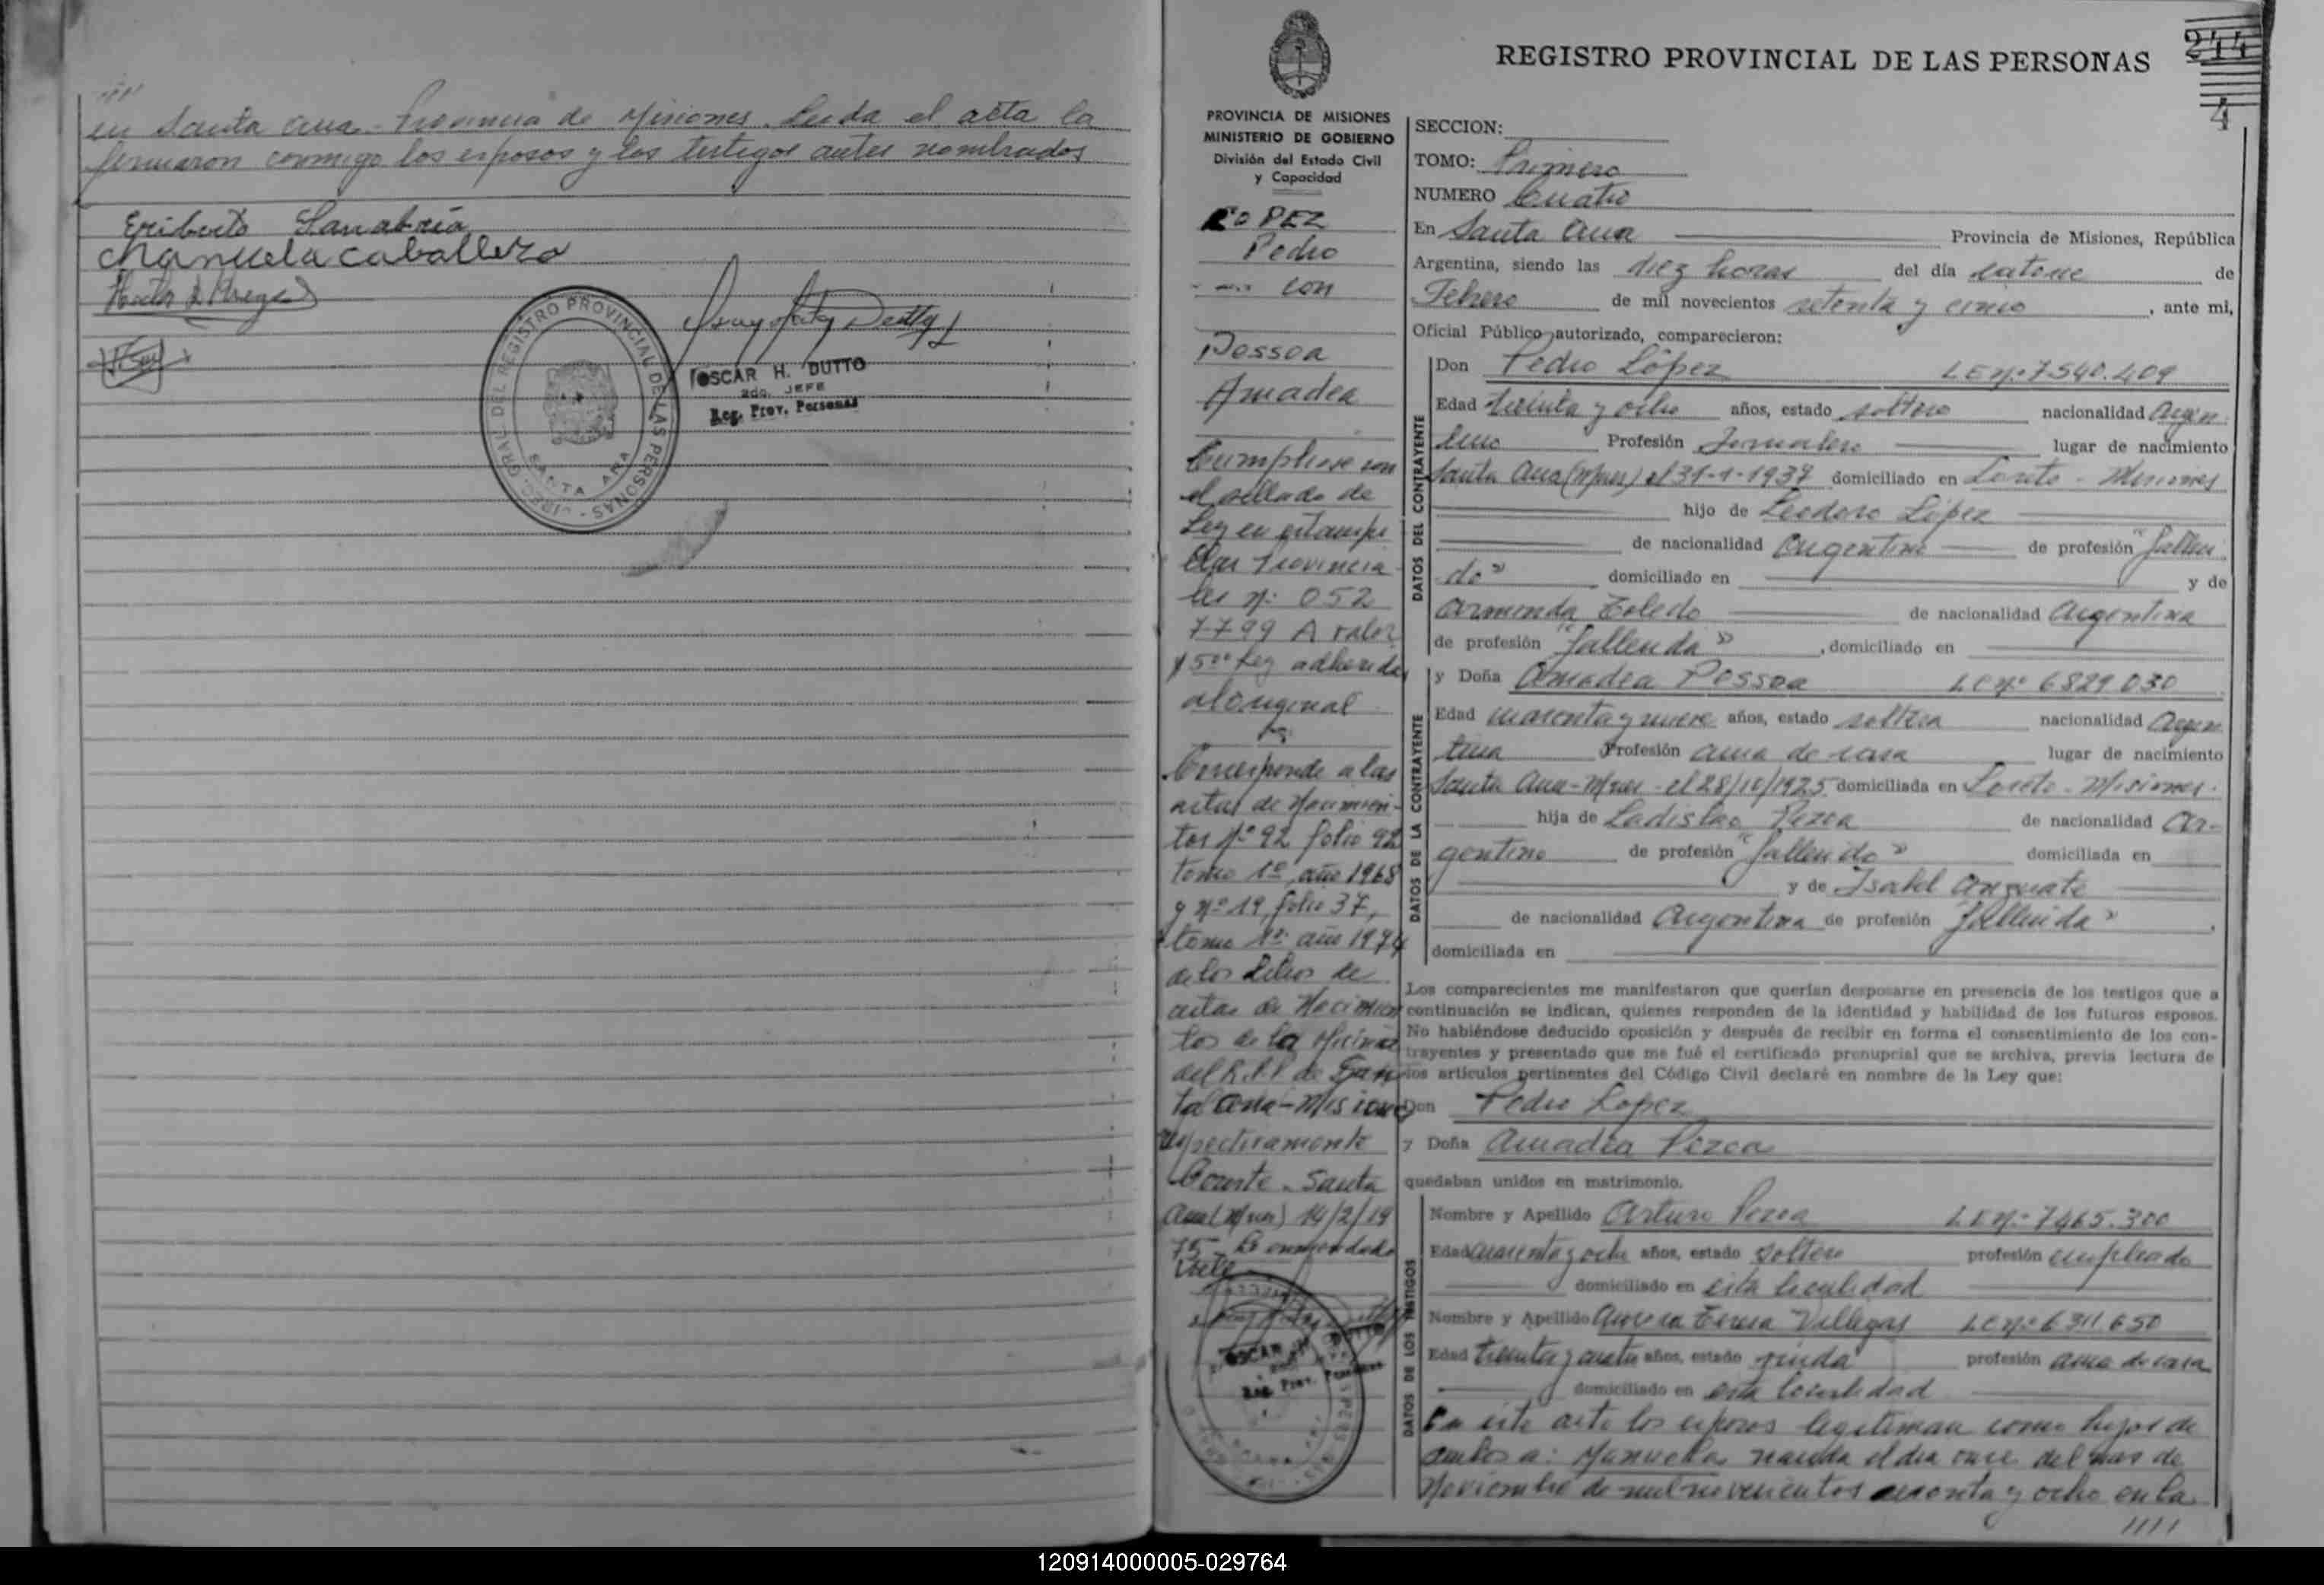 en Santa Ana Provincia de Misiones. Leida el acta la
firmaron conmigo los esposos y los testigos antes nombrados
Eriberto Sanabria
Manuela Caballero
DIREC. GRAL. DEL REGISTRO PROVINCIAL DE LAS PERSONAS
SANTA ANA
OSCAR H. DUTTO
2do. JEFE
Reg. Prov. Personas
REGISTRO PROVINCIAL DE LAS PERSONAS
244
4
PROVINCIA DE MISIONES
MINISTERIO DE GOBIERNO
División del Estado Civil
y Capacidad
LOPEZ
Pedro
con
Pessoa
Amadea
Cumplese con
el sellado de
Ley en estampi
llas Provincia
les Nº 052
7799 A valor
$ 5oo Ley adherida
al original
Corresponde a las
actas de Nacimien-
tos Nº 92 folio 92
tomo 1º, año 1968
y nº 19, folio 37,
tomo 1º año 1974
de los Libros de
actas de Nacimien
tos de la Oficina
del R.P.P. de San
ta Ana-Misiones
respectivamente
Conste. Santa
Ana (Mnes) 14/2/19
75- Lo enmendado
Vale
OSCAR H. DUTTO
Reg. Prov. Personas
SECCION:
TOMO: Primero
NUMERO Cuatro
En Santa Ana Provincia de Misiones, República
Argentina, siendo las diez horas del día catorce de
Febrero de mil novecientos setenta y cinco, ante mi,
Oficial Público autorizado, comparecieron:
DATOS DEL CONTRAYENTE
Don Pedro López LE Nº 7.540.409
Edad treinta y ocho años, estado soltero nacionalidad Argen
tino Profesión Jornalero lugar de nacimiento
Santa Ana (Mnes) el 31-1-1937 domiciliado en Loreto - Misiones
hijo de Leodoro López
de nacionalidad Argentino de profesión "falleci
do" domiciliado en y de
Armenda Toledo de nacionalidad Argentina
de profesión "fallecida", domiciliado en
DATOS DE LA CONTRAYENTE
y Doña Amadea Pessoa LC Nº 6829.030
Edad cuarenta y nueve años, estado soltera nacionalidad Argen
tina Profesión ama de casa lugar de nacimiento
Santa Ana-Mnes - el 28/10/1925 domiciliada en Loreto - Misiones.
hija de Ladislao Pezoa de nacionalidad Ar-
gentino de profesión "fallecido" domiciliada en
y de Isabel
de nacionalidad Argentina de profesión "fallecida",
domiciliada en
Los comparecientes me manifestaron que querían desposarse en presencia de los testigos que a
continuación se indican, quienes responden de la identidad y habilidad de los futuros esposos.
No habiéndose deducido oposición y después de recibir en forma el consentimiento de los con-
trayentes y presentado que me fué el certificado prenupcial que se archiva, previa lectura de
los artículos pertinentes del Código Civil declaré en nombre de la Ley que:
Don Pedro Lopez
y Doña Amadea Pezoa
quedaban unidos en matrimonio.
DATOS DE LOS TESTIGOS
Nombre y Apellido Arturo Pezoa LE Nº 7465.300
Edad cuarenta y ocho años, estado soltero profesión empleado
domiciliado en esta localidad
Nombre y Apellido Aurora Teresa Villegas LC Nº 6311.650
Edad treinta y cuatro años, estado viuda profesión ama de casa
domiciliado en esta localidad
En este acto los esposos legitiman como hijos de
ambos a: Manuela nacida el dia once del mes de
Noviembre de mil novecientos sesenta y ocho en la
////
120914000005-029764